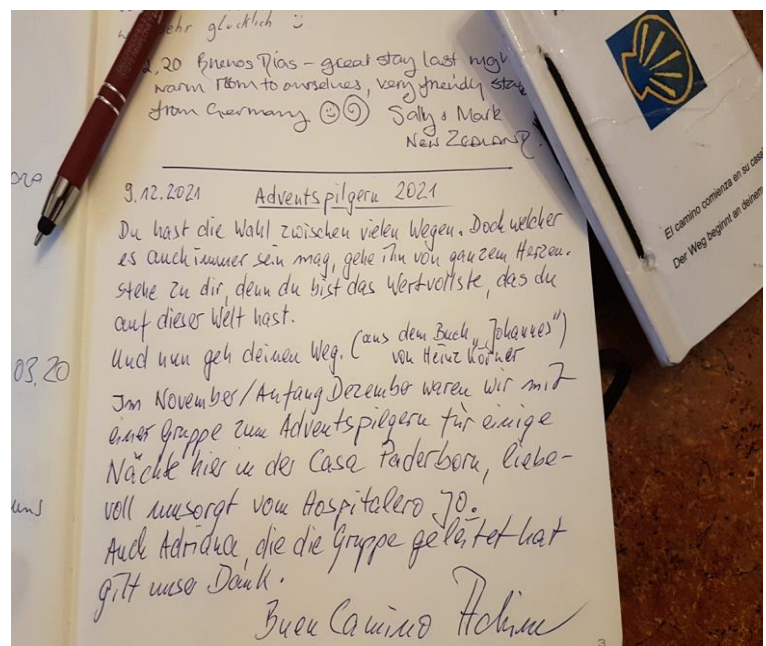 sehr glücklich
2.20 Buenos Días – great stay last nigh
warm room to ourselves, very friendly sta
from Germany Sally & Mark
NEW ZEALAND.
9.12.2021 Adventspilgern 2021
Du hast die Wahl zwischen vielen Wegen. Doch welcher
es auch immer sein mag, gehe ihn von ganzem Herzen.
stehe zu dir, denn du bist das Wertvollste, das du
auf dieser Welt hast.
Und nun geh deinen Weg. (aus dem Buch „Johannes“)
von Heinz Körner
Im November/Anfang Dezember waren wir mit
einer Gruppe zum Adventspilgern für einige
Nächte hier in der Casa Paderborn, liebe-
voll umsorgt vom Hospitalero Jo.
Auch Adriana, die die Gruppe geleitet hat
gilt unser Dank.
Buen Camino Achim
3
03.20
uns
El camino comienza en su casa
Der Weg beginnt an deinem